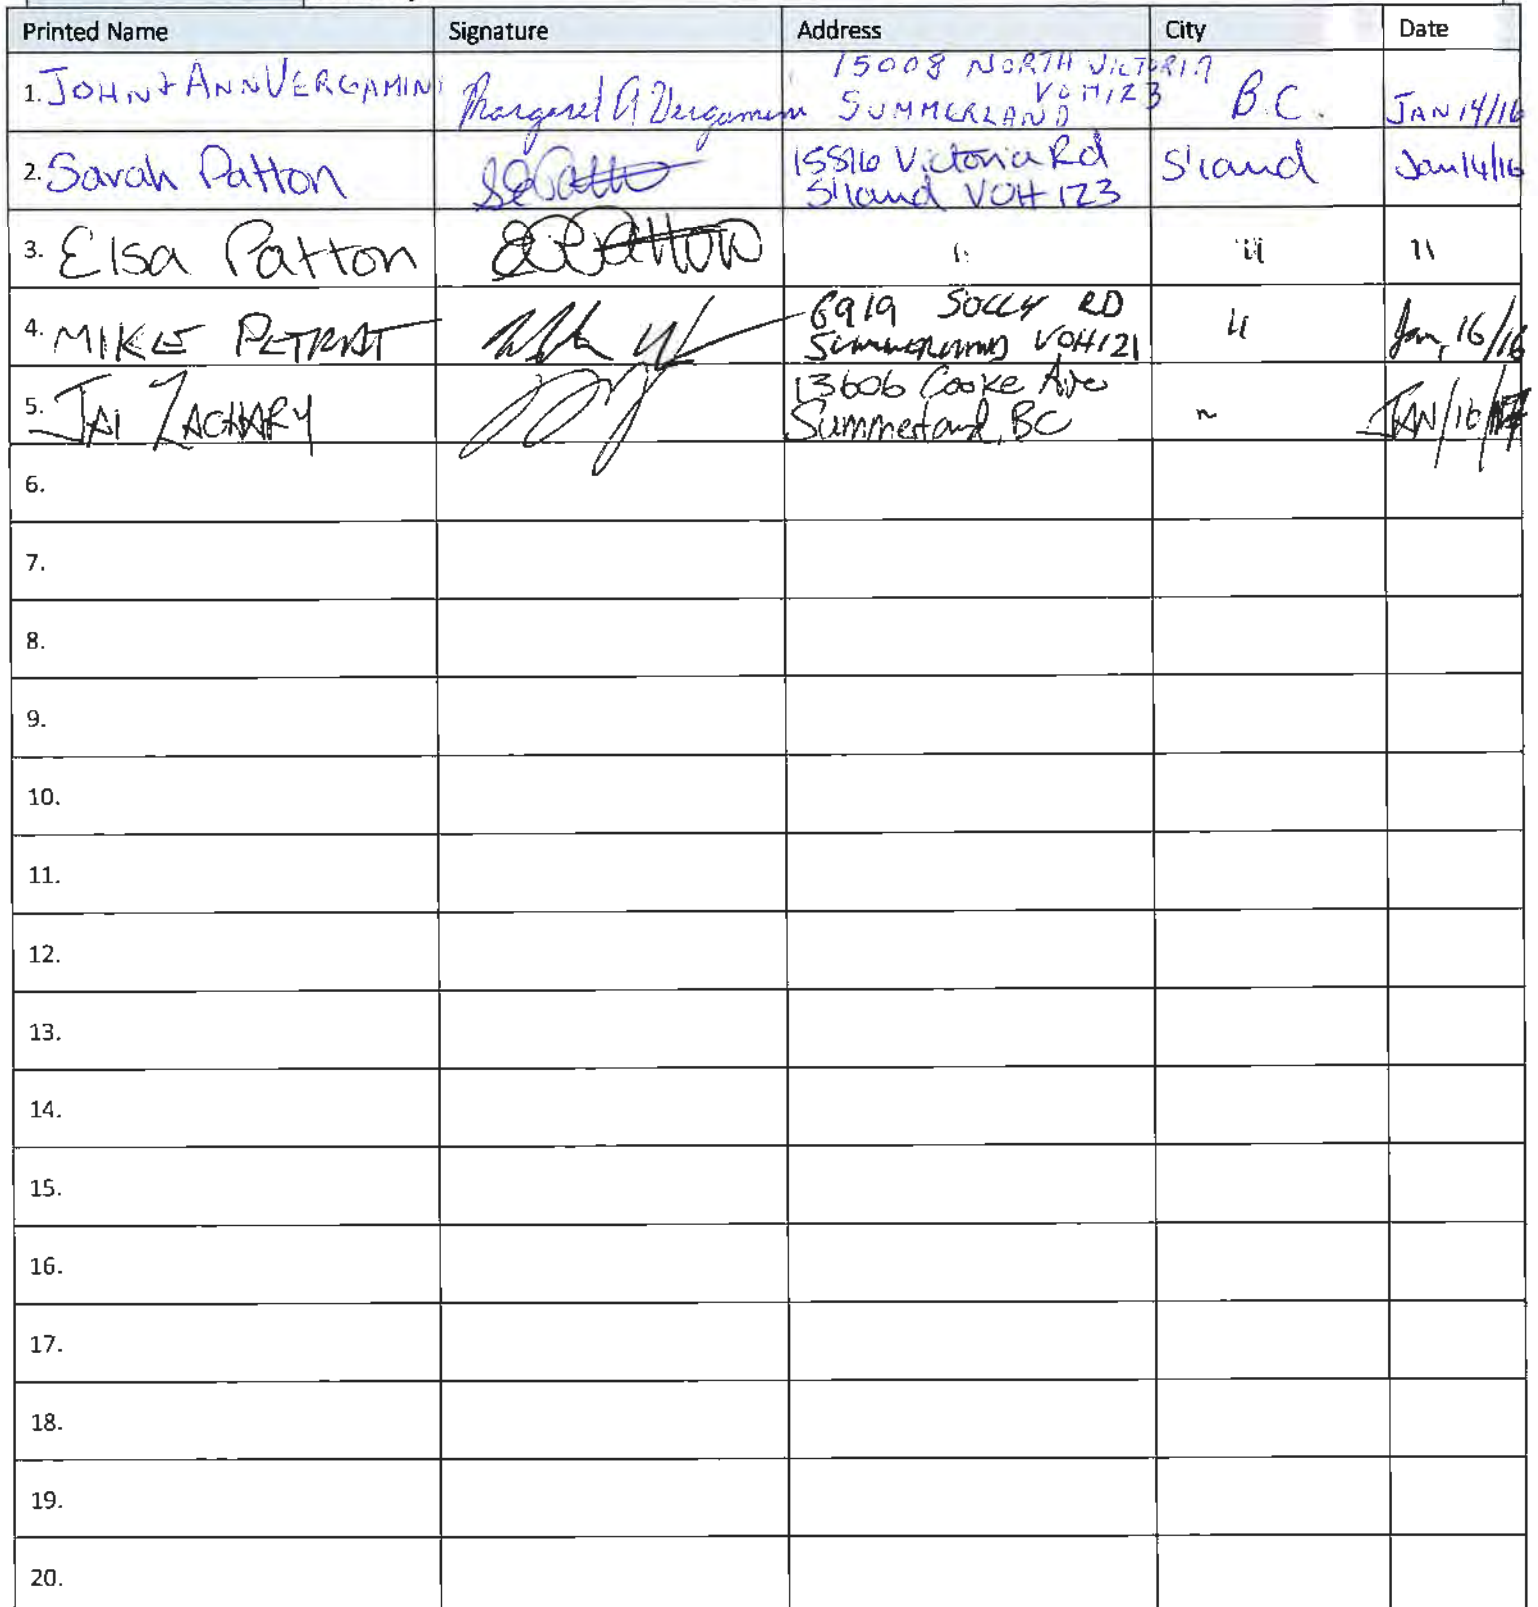 Printed Name Signature Address City Date
1. JOHN + ANN VERGAMINI Margaret A Vergamini 15008 NORTH VICTORIA
SUMMERLAND V0H1Z3 B.C. JAN 14/16
2. Sarah Patton 15516 Victoria Rd
S'land V0H 1Z3 S'land Jan 14/16
3. Elsa Patton " " "
4. MIKE PETRAT 6919 SOLLY RD
Summerland V0H1Z1 " Jan, 16/16
5. JAI ZACHARY 13606 Cooke Ave
Summerland, BC ~ JAN/16/
6.
7.
8.
9.
10.
11.
12.
13.
14.
15.
16.
17.
18.
19.
20.